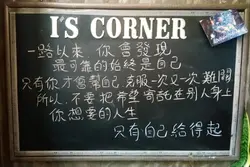 I'S CORNER
一路以來 你會發現
最可靠的始終是自己
只有你才會幫自己 克服一次又一次難關
所以 不要把希望寄託在別人身上
你想要的人生
只有自己給得起